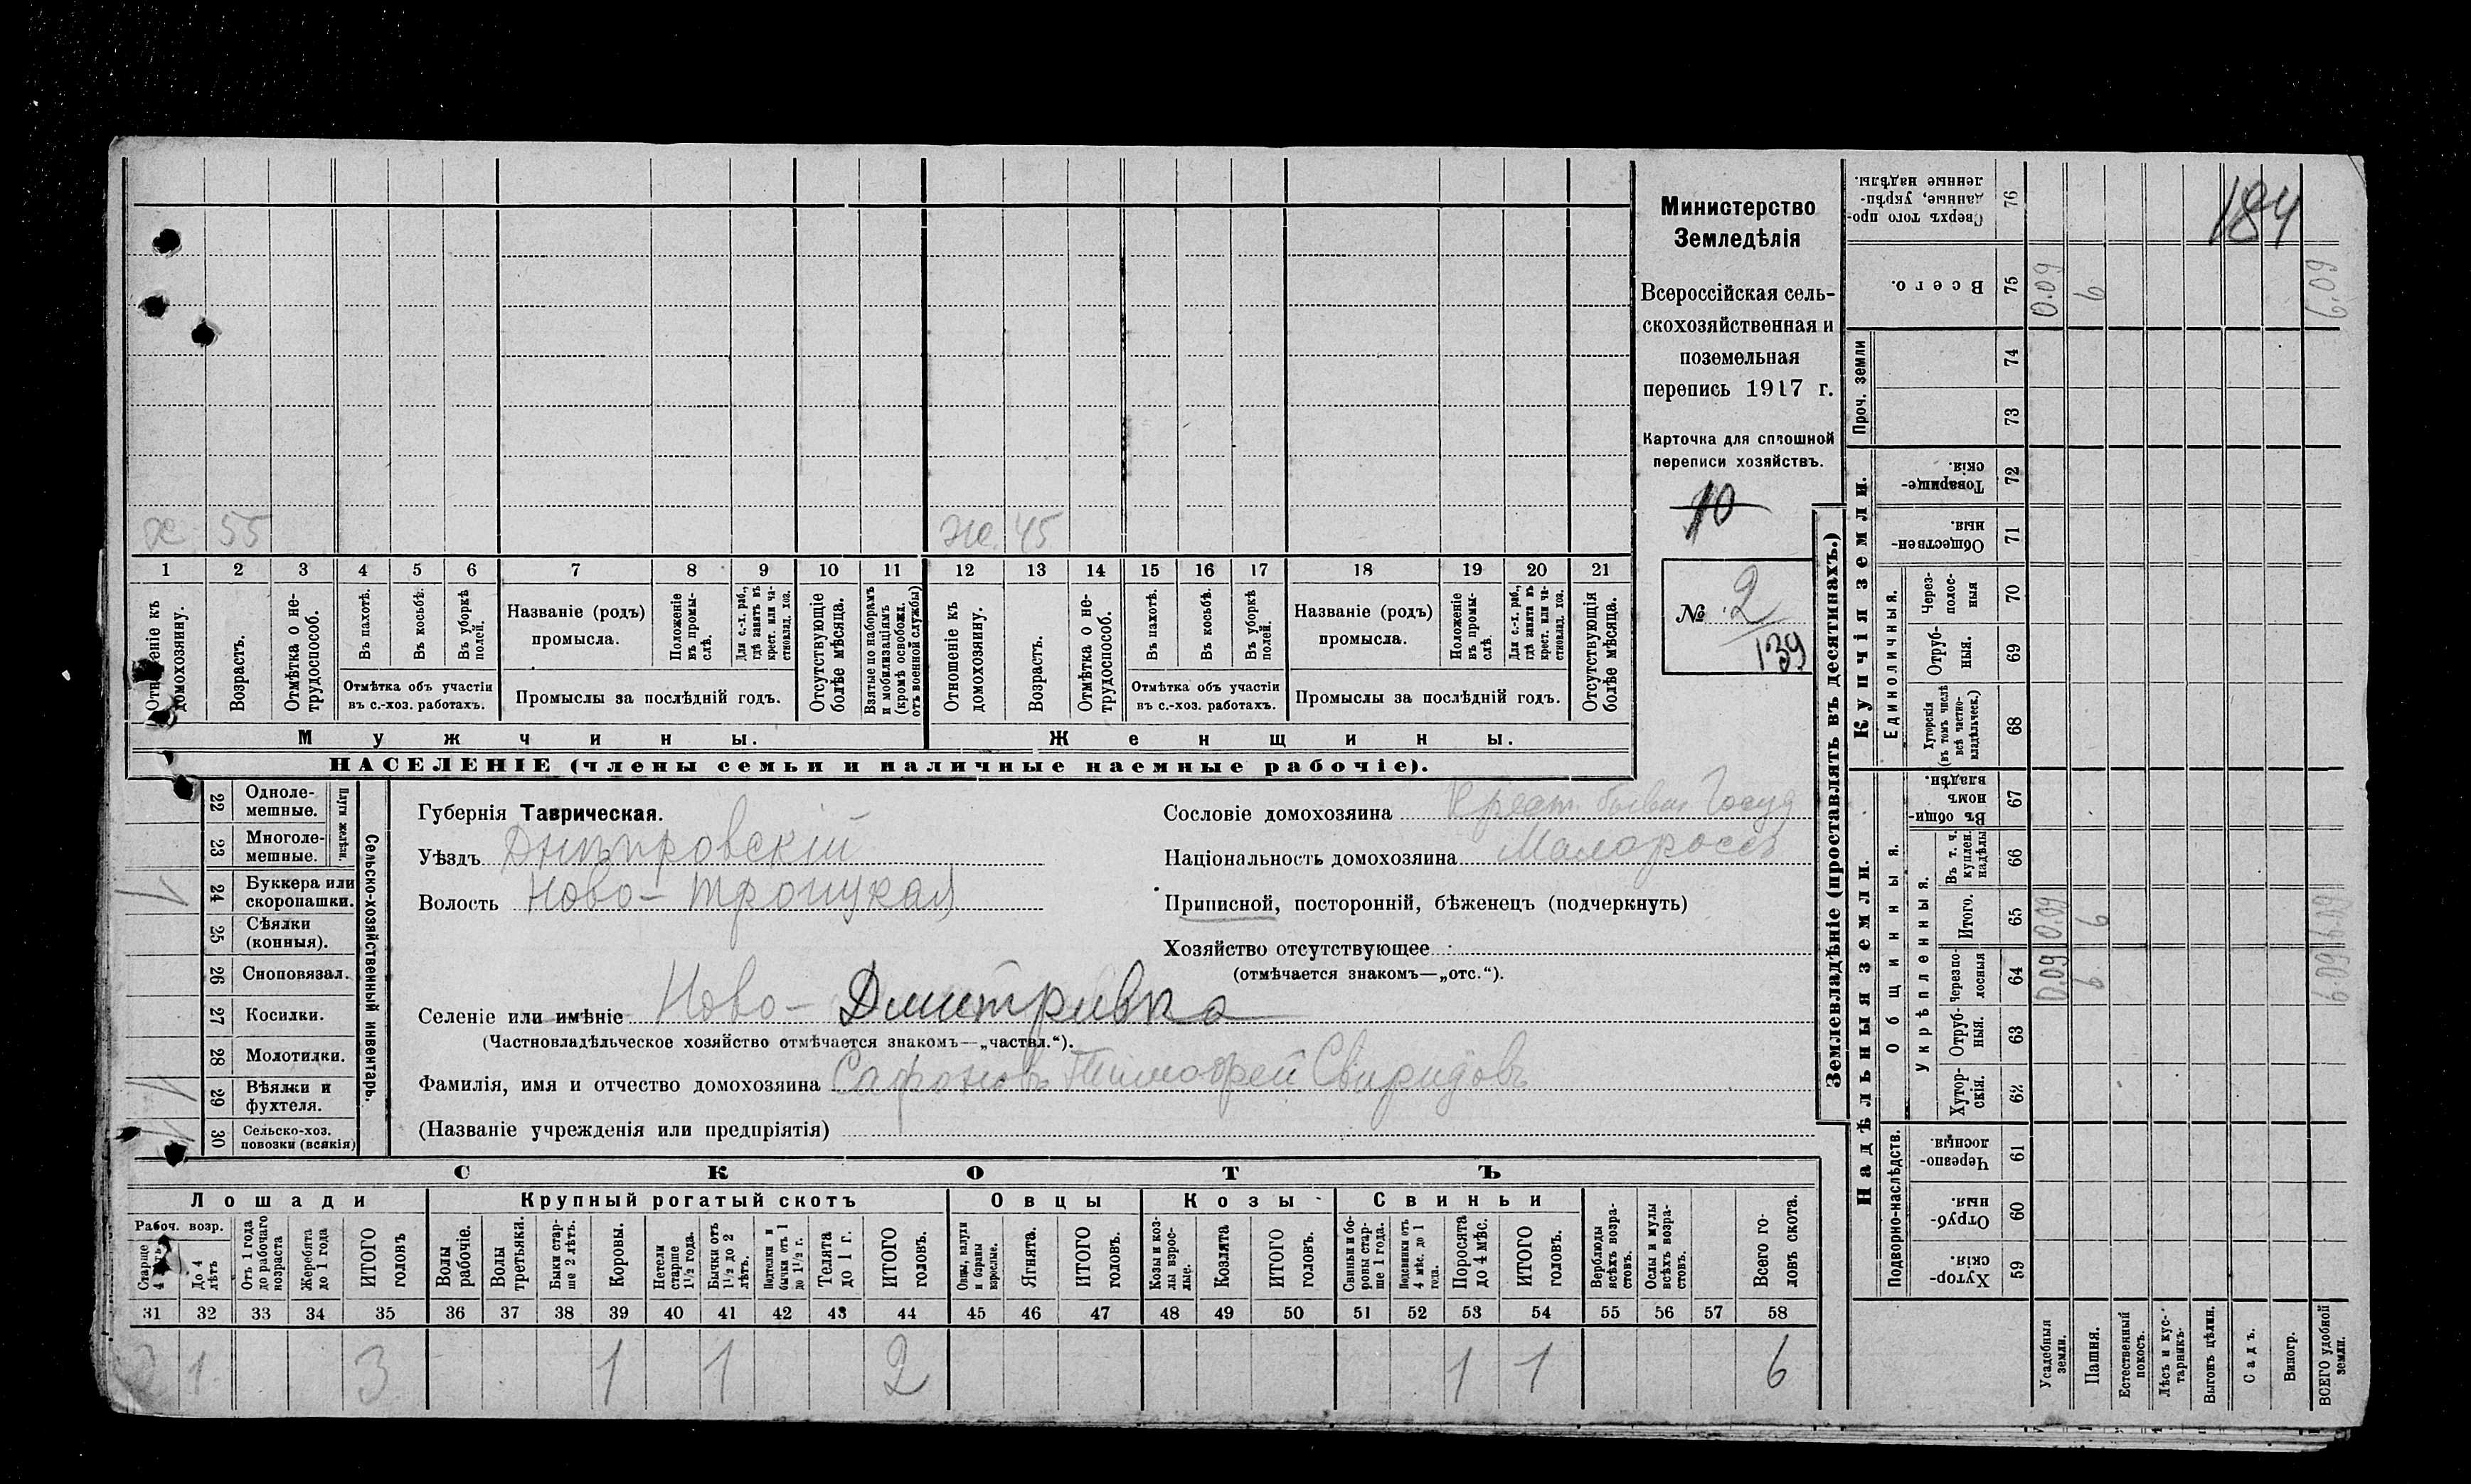 х 55
ж. 45
1 2 3 4 5 6 7 8 9 10 11 12 13 14 15 16 17 18 19 20 21
Отношеніе къ домохозяину.
Возрастъ.
Отмѣтка о не-трудоспособ.
Въ пахотѣ.
Въ косьбѣ.
Въ уборкѣ полей.
Отмѣтка объ участіи
въ с.-хоз. работахъ.
Названіе (родъ)
промысла.
Положеніе въ промы-слѣ.
Для с.-х. раб., гдѣ занятъ въ крест. или ча-стновлад. хоз.
Промыслы за послѣдній годъ.
Отсутствующіе болѣе мѣсяца.
Взятые по наборамъ и мобилизаціямъ (кромѣ освобожд. отъ военной службы)
Отношеніе къ домохозяину.
Возрастъ.
Отмѣтка о не-трудоспособ.
Въ пахотѣ.
Въ косьбѣ.
Въ уборкѣ полей.
Отмѣтка объ участіи
въ с.-хоз. работахъ.
Названіе (родъ)
промысла.
Положеніе въ промы-слѣ.
Для с.-х. раб., гдѣ занята въ крест. или ча-стновлад. хоз.
Промыслы за послѣдній годъ.
Отсутствующія болѣе мѣсяца.
Мужчины.
Женщины.
НАСЕЛЕНІЕ (члены семьи и наличные наемные рабочіе).
Министерство
Земледѣлія
Всероссійская сель-
скохозяйственная и
поземельная
перепись 1917 г.
Карточка для сплошной
переписи хозяйствъ.
10
№ 2
139
22 Одноле-мешные.
23 Многоле-мешные.
Плуги желѣзн.
24 Буккера или скоропашки. 1
25 Сѣялки (конныя).
26 Сноповязал.
27 Косилки.
28 Молотилки.
29 Вѣялки и фухтеля. 1
30 Сельско-хоз. повозки (всякія) 1
Сельско-хозяйственный инвентарь.
Губернія Таврическая.
Уѣздъ Днѣпровскій
Волость Ново-Троицкая
Сословіе домохозяина Крест. бывш Госуд
Національность домохозяина Малороссъ
Приписной, посторонній, бѣженецъ (подчеркнуть)
Хозяйство отсутствующее
(отмѣчается знакомъ—„отс.“).
Селеніе или имѣніе Ново-Дмитривка
(Частновладѣльческое хозяйство отмѣчается знакомъ—„частвл.“).
Фамилія, имя и отчество домохозяина Сафоновъ Тимофей Свиридовъ
(Названіе учрежденія или предпріятія)
СКОТЪ
Лошади
Крупный рогатый скотъ
Овцы
Козы
Свиньи
Рабоч. возр.
Старше 4 лѣтъ
До 4 лѣтъ
Отъ 1 года до рабочаго возраста
Жеребята до 1 года
ИТОГО головъ
Волы рабочіе.
Волы третьяки.
Быки стар-ше 2 лѣтъ.
Коровы.
Нетели старше 1½ года.
Бычки отъ 1½ до 2 лѣтъ.
Подтелки и бычки отъ 1 до 1½ г.
Телята до 1 г.
ИТОГО головъ.
Овцы, валухи и бараны взрослые.
Ягнята.
ИТОГО головъ.
Козы и коз-лы взрос-лые.
Козлята
ИТОГО головъ.
Свиньи и бо-ровы стар-ше 1 года.
Подсвинки отъ 4 мѣс. до 1 года.
Поросята до 4 мѣс.
ИТОГО головъ.
Верблюды всѣхъ возра-стовъ.
Ослы и мулы всѣхъ возра-стовъ.
Всего го-ловъ скота.
31 32 33 34 35 36 37 38 39 40 41 42 43 44 45 46 47 48 49 50 51 52 53 54 55 56 57 58
2 1 3 1 1 2 1 1 6
Землевладѣніе (проставлять въ десятинахъ.)
Надѣльныя земли.
Купчія земли.
Проч. земли
Подворно-наслѣдств.
Общинныя.
Укрѣпленныя.
Единоличныя.
Сверхъ того про-данные, укрѣп-ленные надѣлы. 76
Всего. 75 0.09 6 6.09
74
73
Товарище-скія. 72
Обществен-ныя. 71
Через-полос-ныя 70
Отруб-ныя. 69
Хуторскія (въ томъ числѣ всѣ частно-владѣльческ.) 68
Въ общин-номъ владѣн. 67
Въ т. ч. куплен. надѣлы 66
Итого. 65 0.09 6 6.09
Черезпо-лосныя 64 0.09 6 6.09
Отруб-ныя. 63
Хутор-скія. 62
Черезпо-лосныя. 61
Отруб-ныя. 60
Хутор-скія. 59
Усадебныя земли.
Пашня.
Естественный покосъ.
Лѣсъ и кус-тарникъ.
Выгонъ цѣлин.
Садъ.
Виногр.
ВСЕГО удобной земли.
184